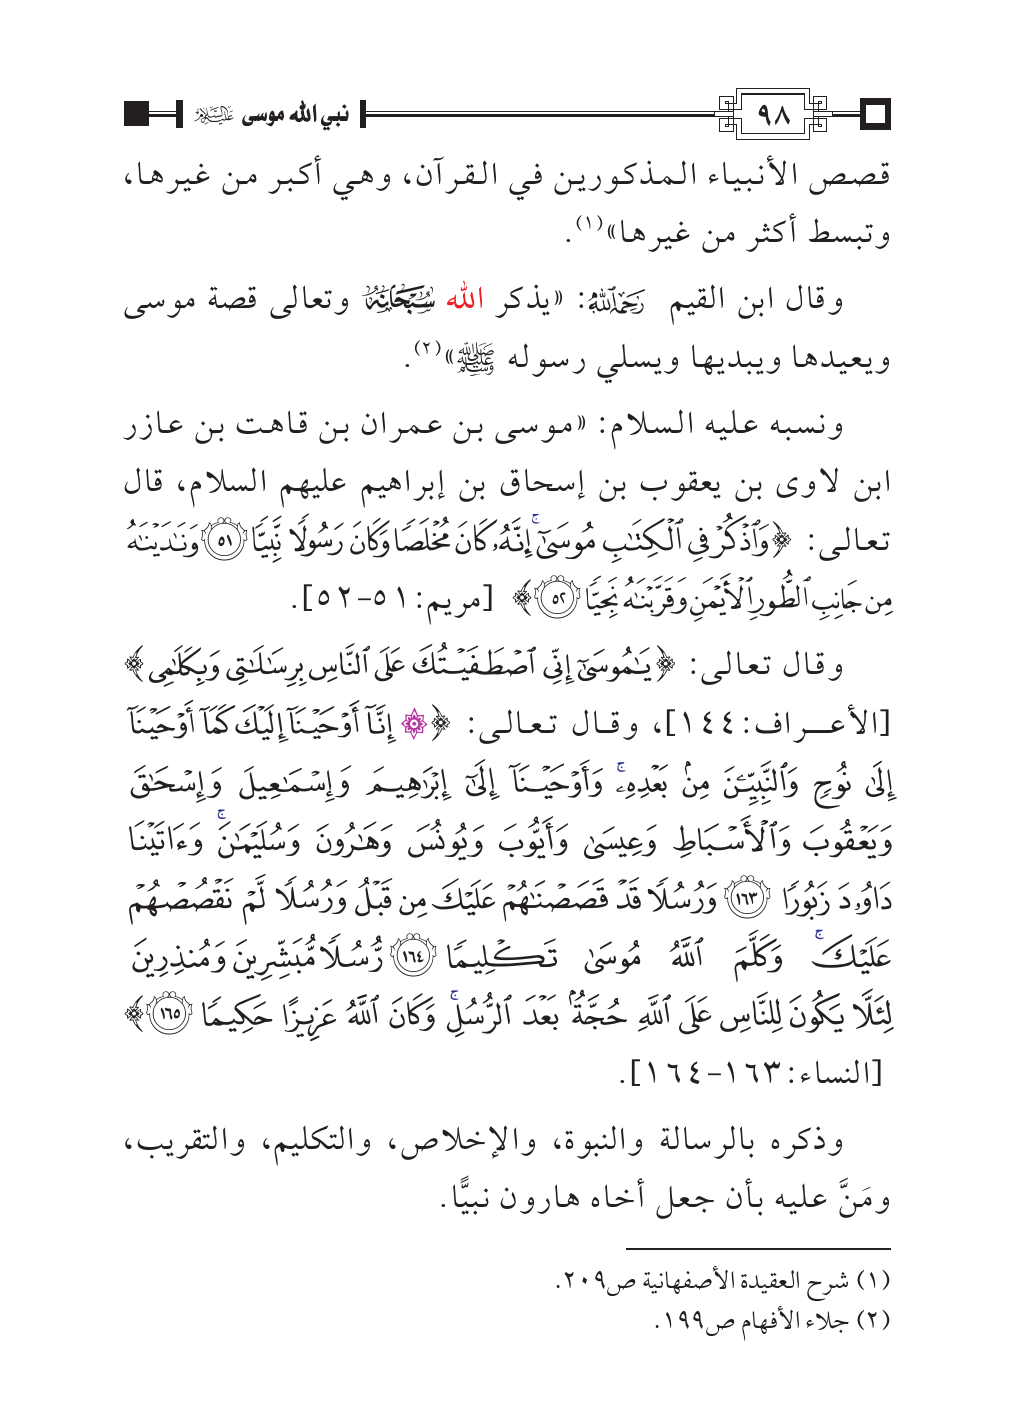 ٩٨ نبي الله موسى عليه السلام
قصص الأنبياء المذكورين في القرآن، وهي أكبر من غيرها،
وتبسط أكثر من غيرها»(١).
وقال ابن القيم رحمه الله: «يذكر الله سبحانه وتعالى قصة موسى
ويعيدها ويبديها ويسلي رسوله ﷺ»(٢).
ونسبه عليه السلام: «موسى بن عمران بن قاهت بن عازر
ابن لاوى بن يعقوب بن إسحاق بن إبراهيم عليهم السلام، قال
تعالى: ﴿وَٱذْكُرْ فِى ٱلْكِتَٰبِ مُوسَىٰٓ ۚ إِنَّهُۥ كَانَ مُخْلَصًا وَكَانَ رَسُولًا نَّبِيًّا ٥١ وَنَٰدَيْنَٰهُ
مِن جَانِبِ ٱلطُّورِ ٱلْأَيْمَنِ وَقَرَّبْنَٰهُ نَجِيًّا ٥٢﴾ [مريم: ٥١-٥٢].
وقال تعالى: ﴿يَٰمُوسَىٰٓ إِنِّى ٱصْطَفَيْتُكَ عَلَى ٱلنَّاسِ بِرِسَٰلَٰتِى وَبِكَلَٰمِى﴾
[الأعراف: ١٤٤]، وقال تعالى: ﴿۞ إِنَّآ أَوْحَيْنَآ إِلَيْكَ كَمَآ أَوْحَيْنَآ
إِلَىٰ نُوحٍ وَٱلنَّبِيِّـۧنَ مِنۢ بَعْدِهِۦ ۚ وَأَوْحَيْنَآ إِلَىٰٓ إِبْرَٰهِيمَ وَإِسْمَٰعِيلَ وَإِسْحَٰقَ
وَيَعْقُوبَ وَٱلْأَسْبَاطِ وَعِيسَىٰ وَأَيُّوبَ وَيُونُسَ وَهَٰرُونَ وَسُلَيْمَٰنَ ۚ وَءَاتَيْنَا
دَاوُۥدَ زَبُورًا ١٦٣ وَرُسُلًا قَدْ قَصَصْنَٰهُمْ عَلَيْكَ مِن قَبْلُ وَرُسُلًا لَّمْ نَقْصُصْهُمْ
عَلَيْكَ ۚ وَكَلَّمَ ٱللَّهُ مُوسَىٰ تَكْلِيمًا ١٦٤ رُّسُلًا مُّبَشِّرِينَ وَمُنذِرِينَ
لِئَلَّا يَكُونَ لِلنَّاسِ عَلَى ٱللَّهِ حُجَّةٌۢ بَعْدَ ٱلرُّسُلِ ۚ وَكَانَ ٱللَّهُ عَزِيزًا حَكِيمًا ١٦٥﴾
[النساء: ١٦٣-١٦٤].
وذكره بالرسالة والنبوة، والإخلاص، والتكليم، والتقريب،
ومَنَّ عليه بأن جعل أخاه هارون نبيًّا.
(١) شرح العقيدة الأصفهانية ص٢٠٩.
(٢) جلاء الأفهام ص١٩٩.